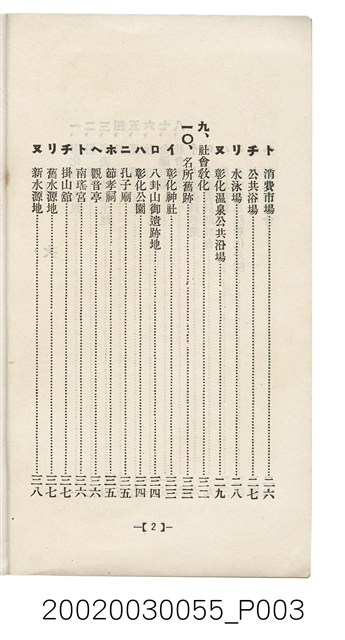 ト 消費市場……二六
チ 公共浴場……二七
リ 水泳場……二八
ヌ 彰化温泉公共浴場……二九
九、社會敎化……三二
一〇、名所舊跡……三三
イ 彰化神社……三三
ロ 八卦山御遺跡地……三四
ハ 彰化公園……三四
ニ 孔子廟……三五
ホ 節孝祠……三五
ヘ 觀音亭……三六
ト 南瑤宮……三六
チ 掛山舘……三七
リ 舊水源地……三七
ヌ 新水源地……三八
—【2】—
20020030055_P003